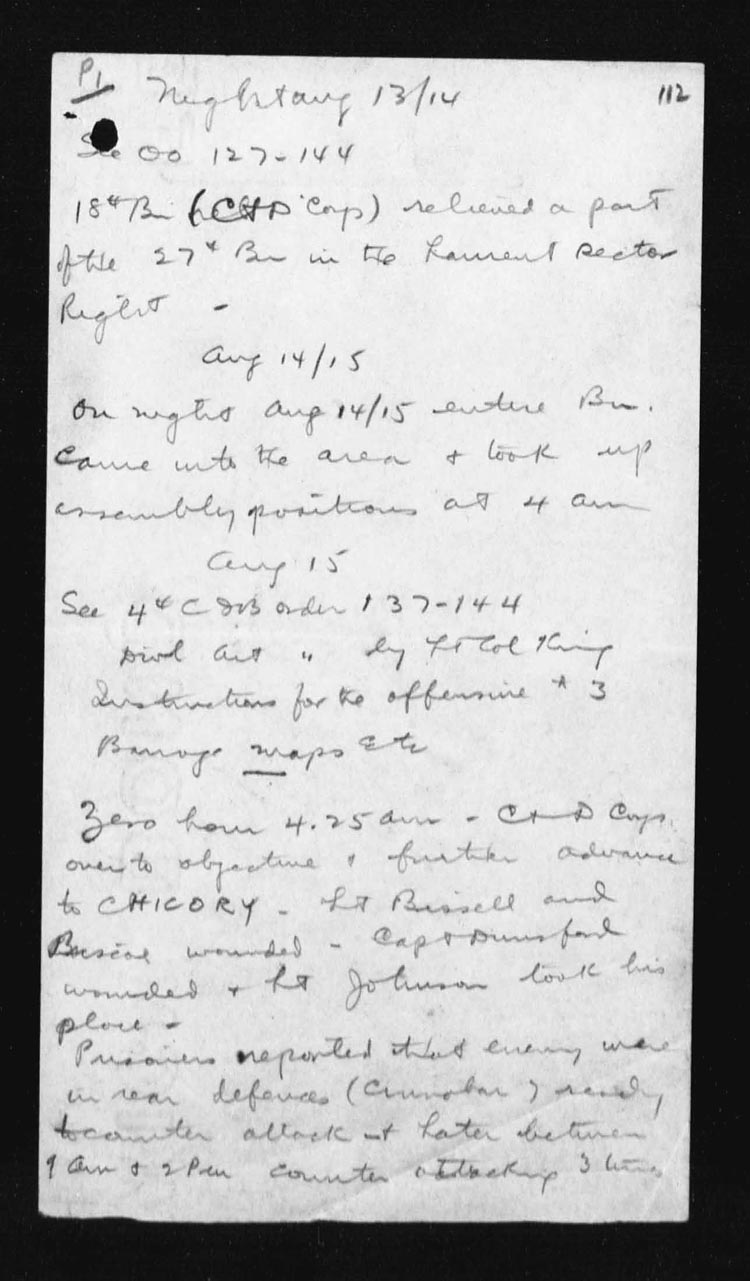 P1
Night Aug 13/14
112
See OO 127-144
18th Bn (C & D Corps) relieved a part
of the 27th Bn in the Laurent sector
Right -
Aug 14/15
On night Aug 14/15 entire Bn.
came into the area & took up
assembly positions at 4 am
Aug 15
See 4th C I B order 137-144
Divl Art " by Lt Col King
Instructions for the offensive # 3
Barrage maps Etc
Zero hour 4.25 am - C & D Coys.
over to objective & further advance
to CHICORY - Lt Bissell and
Briscoe wounded - Capt Dunsford
wounded & Lt Johnson took his
place -
Prisoners reported that enemy were
in rear defences (Cinnabar) ready
to counter attack & later between
9 Am & 2 Pm counter attacking 3 times